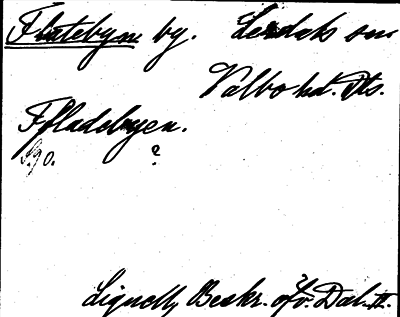 Flatebyn by. Lerdals sn
Valbo hd. Ds.
Ffladebyen.
?
Lignell, Beskr. öfv. Dal. II.